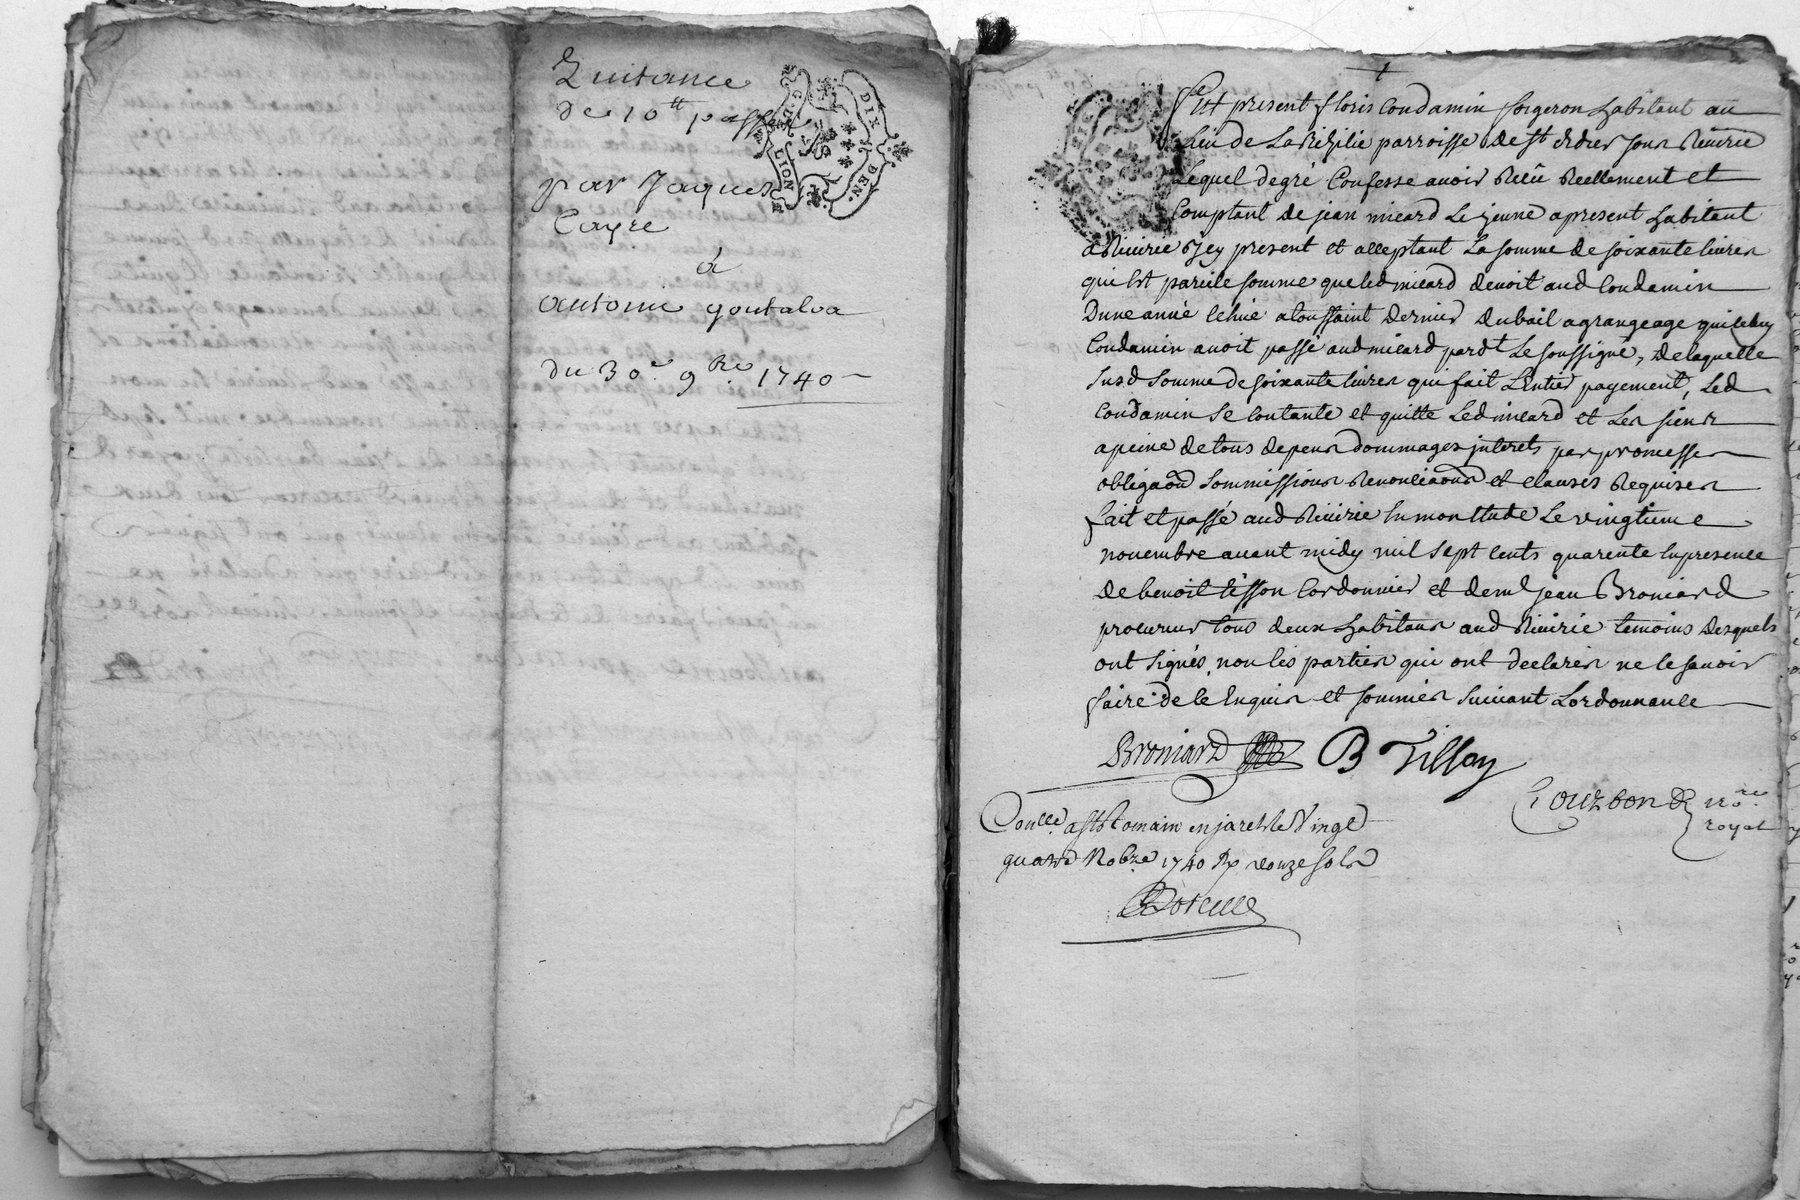 Quitance
de 10tt passée
par Jaques
Cayre
à
antoine goutalva
du 30e 9bre 1740
G. DE LION
DIX DEN.
Est present floris Condamin forgeron habitant au
lieu de parroisse de st didier sous Riuirie
Lequel degré Confesse auoir Reçû Reellement et
Comptant de jean micard Le jeune apresent habitant
a Riuirie jcy present et acceptant La somme de soixante liures
qui Est pareile somme que led micard deuoit aud Condamin
Dune anné échüe a toussaint dernier du bail a grangeage que led
Condamin auoit passé aud micard par dt Le soussigné, de laquelle
susd somme de soixante liures qui fait L'Entier payement, Led
Condamin se Contante et quitte Led micard et Les siens
a peine de tous depens dommages jnterets par promesses
obligaõns soummissions Renonciaõns et clauses Requises
fait et passé aud Riuirie En mon Etude Le vingtieme
nouembre auant midy mil sept Cents quarente En presence
de benoit tisson Cordonnier et de mtre jean Broniard
procureur tous deux habitans aud Riuirie temoins Desquels
ont signés, non les parties qui ont declarés ne le sauoir
faire de ce Enquis et sommés suiuant Lordonnance
Broniard B Tissoy
Gourbon nore
royal
Conllé a st Romain en jarest le Vingt
quatre Nobre 1740 Rx douze sols